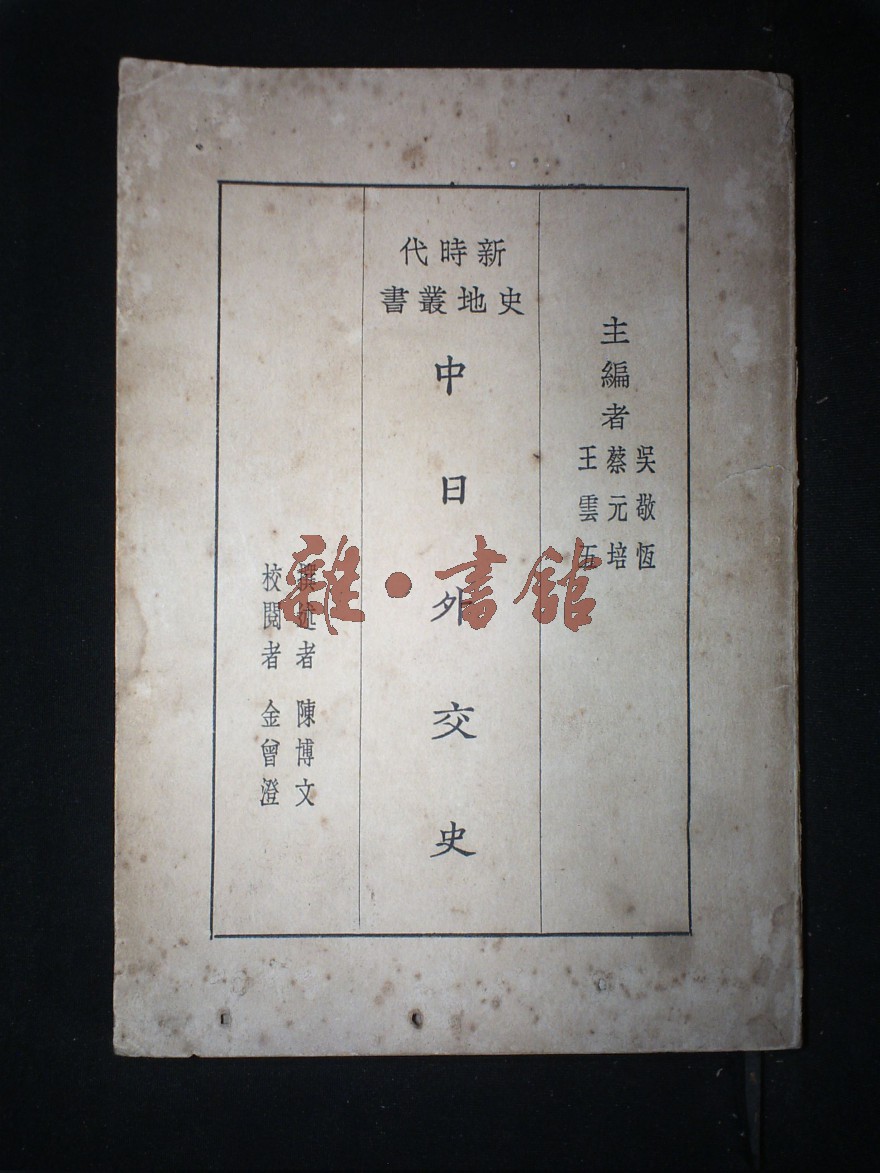 主編者
吳敬恆
蔡元培
王雲五
新時代
史地叢書
中日外交史
撰述者 陳博文
校閱者 金曾澄
雜·書館